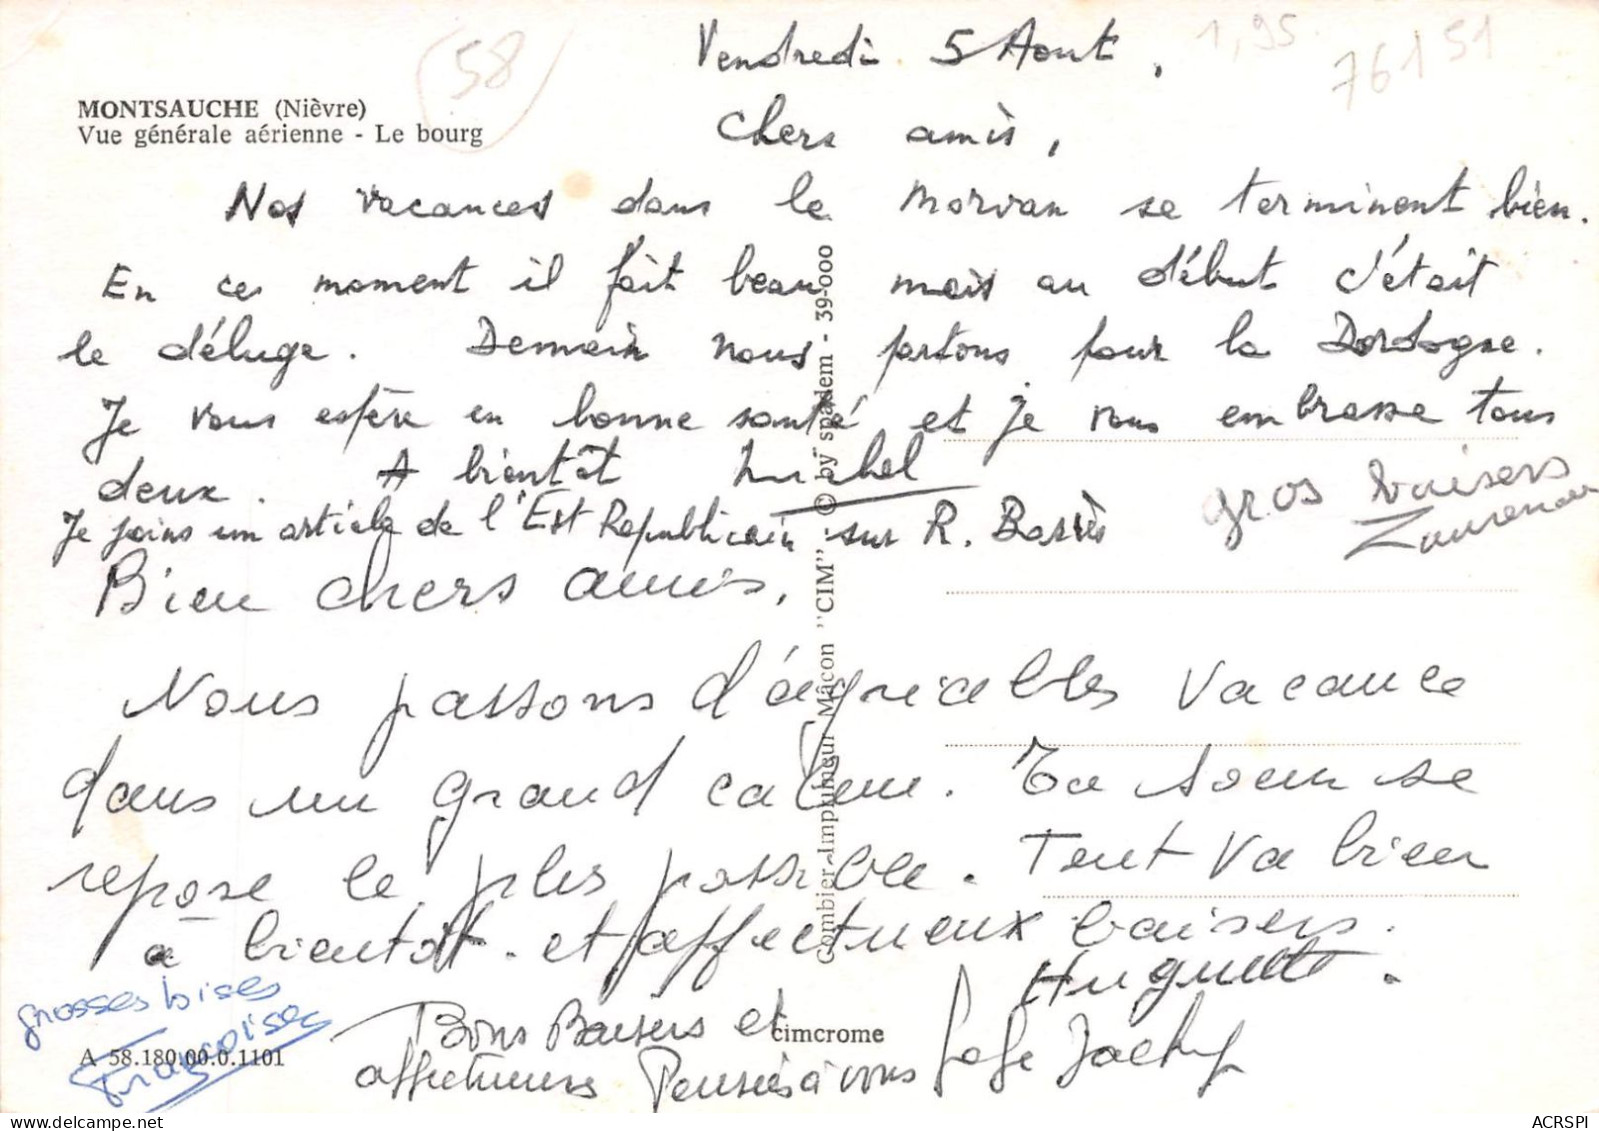 Vendredi 5 Aout,
1,95
76151
58
MONTSAUCHE (Nièvre)
Vue générale aérienne - Le bourg
Chers amis,
Nos vacances dans le Morvan se terminent bien.
En ce moment il fait beau mais au début c'était
le déluge. Demain nous partons pour la Dordogne.
Je vous espère en bonne santé et je vous embrasse tous
deux. A bientôt Michel
gros baisers
Je joins un article de l'Est Republicain sur R. Barrès
Bien chers amis,
Nous passons d'agréables vacance
dans un grand calme. Ta soeur se
repose le plus possible. Tout va bien
a bientôt. et affectueux baisers.
Huguette.
grosses bises
Françoise
Bons Baisers et
affectueuses Pensées à vous Jacky
cimcrome
A 58.180.00.0.1101
Combier Imprimeur Mâcon "CIM" © by spadem - 39-000
ACRSPI